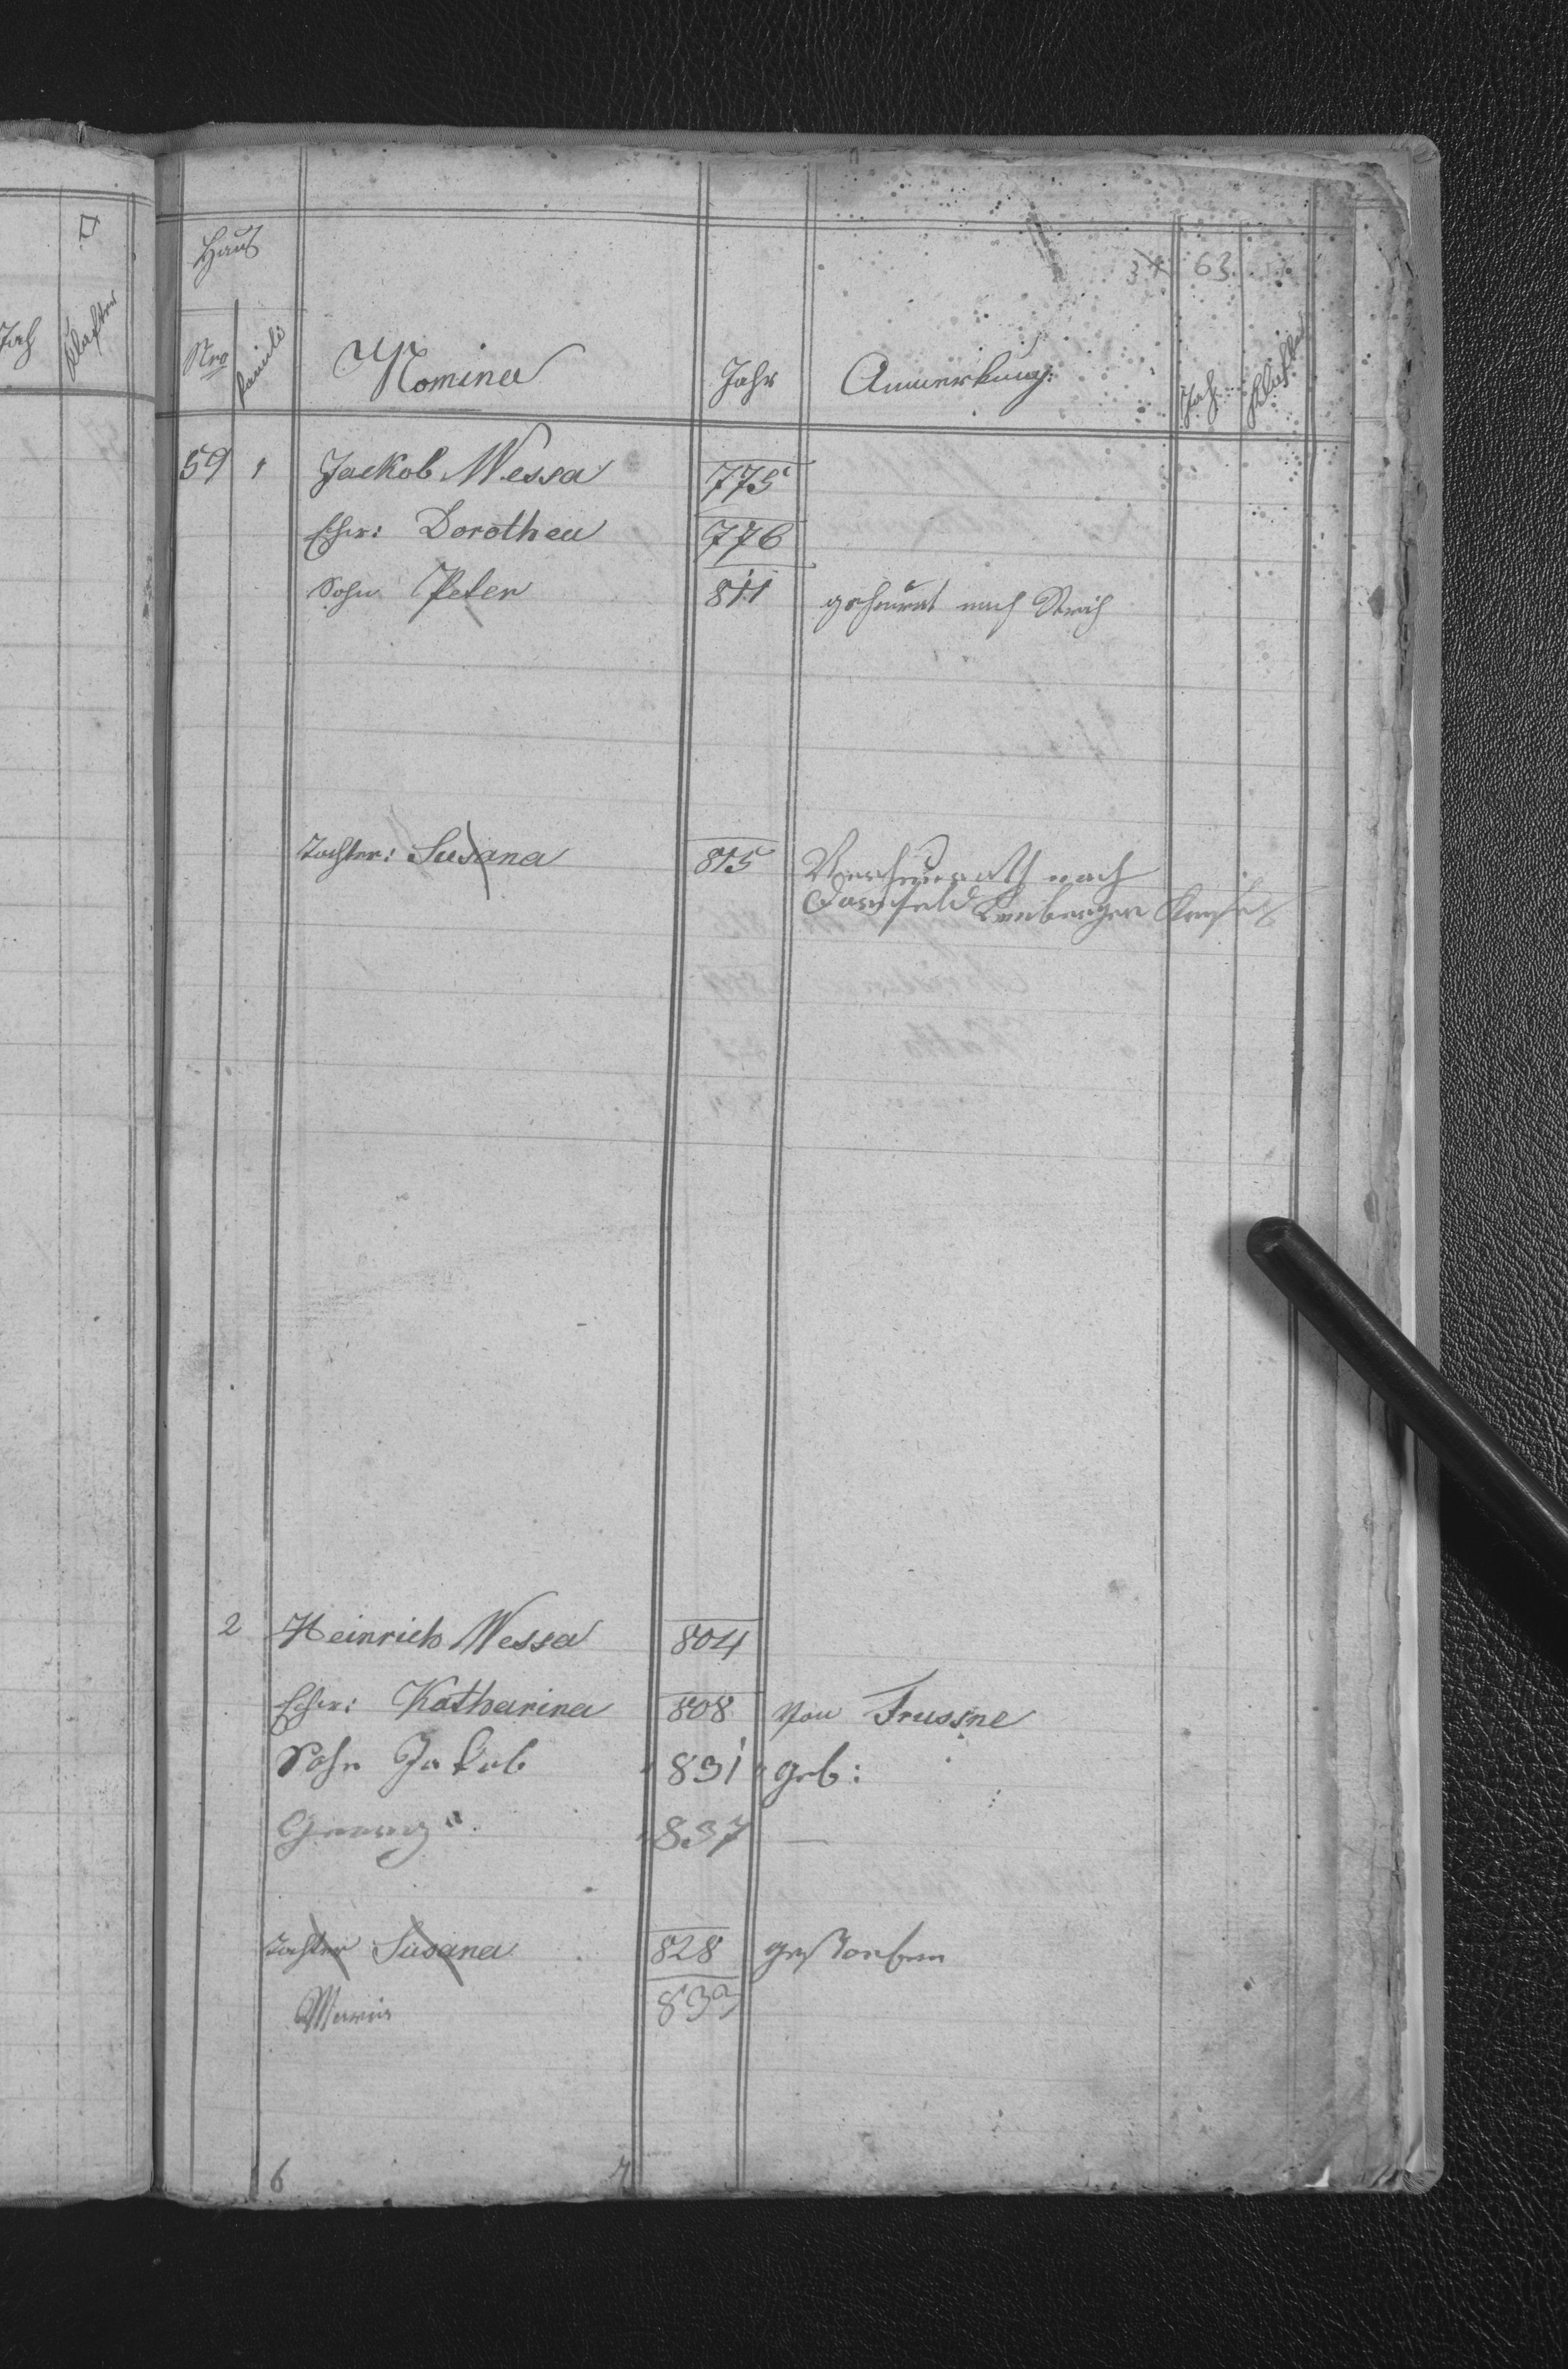 Joch Klafter
34 63
Haus
Nro Famili Nomina Jahr Anmerkung: Joch Klafter
59 1 Jackob Wessa 775
Ehw: Dorothea 776
Sohn Peter 811 geheurat nach
Tochter: Susana 815 Verheurath nach
Dornfeld Lemberger Kreises
2 Heinrich Wessa 804
Ehw: Katharina 808 Von Trussne
Sohn Jakob 831 geb:
Georg 837 —
Tochter Susana 828 gestorben
Maria
6